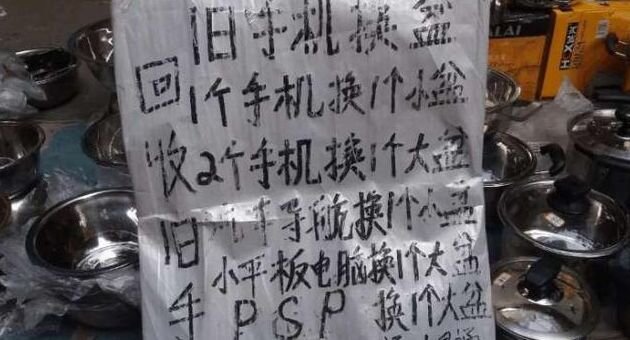 旧手机换盆
1个手机换1个小盆
2个手机换1个大盆
汽车导航换1个小盆
小平板电脑换1个大盆
PSP 换1个大盆
回收旧手
LAI